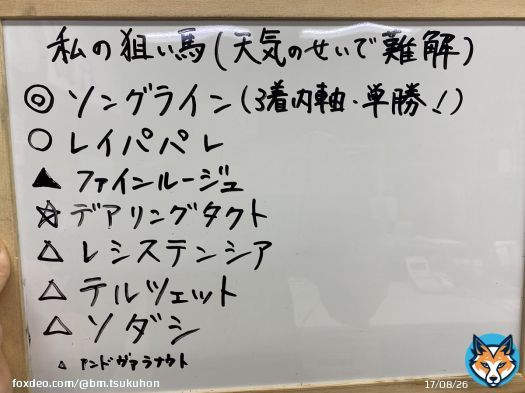 私の狙い馬(天気のせいで難解)
◎ ソングライン(3着内軸・単勝!)
○ レイパパレ
▲ ファインルージュ
☆ デアリングタクト
△ レシステンシア
△ テルツェット
△ ソダシ
△ アンドヴァラナウト
foxdeo.com/@bm.tsukuhon
17/08/26